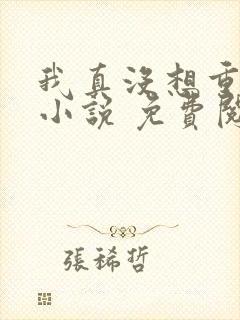 我真没想重
小説 免費閱
張稀哲